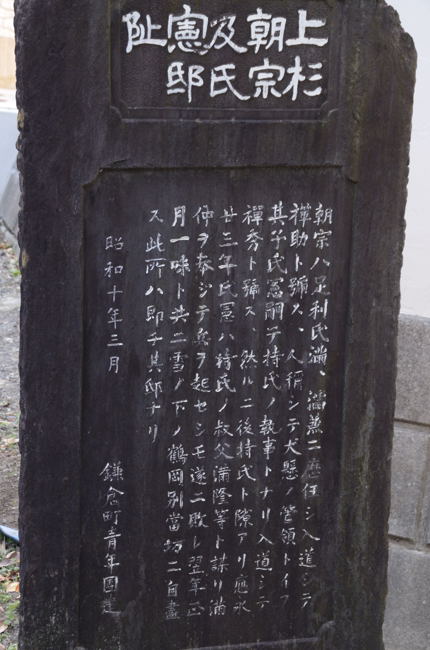 上杉
朝宗
及氏
憲邸
阯
朝宗ハ足利氏満、満兼ニ歴任シ入道シテ
禅助ト號ス、人稱シテ犬懸ノ管領トイフ
其子氏憲嗣デ持氏ノ執事トナリ入道シテ
禅秀ト號ス、然ルニ後持氏ト隙アリ應永
廿三年氏憲ハ持氏ノ叔父満隆等ト謀リ満
仲ヲ奉ジテ兵ヲ起セシモ遂ニ敗レ翌年正
月一味ト共ニ雪ノ下ノ鶴岡別當坊ニ自盡
ス此所ハ即チ其邸ナリ
昭和十年三月 鎌倉町青年團建